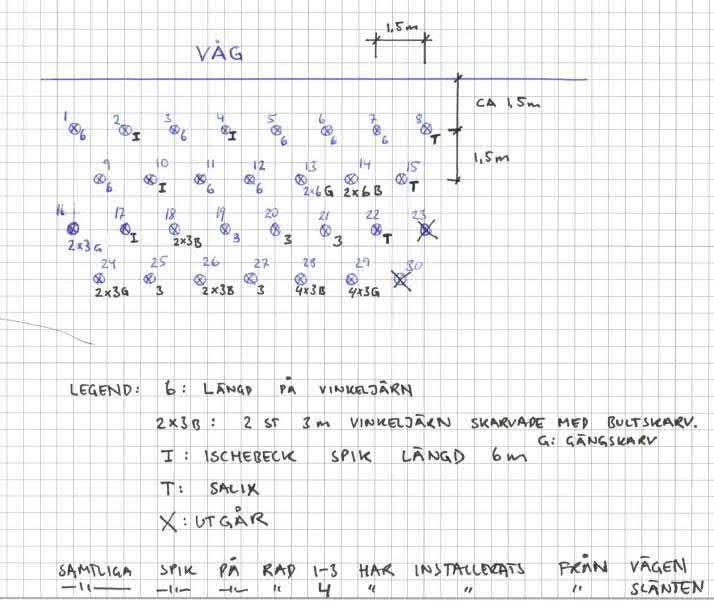 1,5m
VÄG
CA 1,5m
1 2 3 4 5 6 7 8
6 I 6 I 6 6 6 T
1,5m
9 10 11 12 13 14 15
6 I 6 6 2×6G 2×6B T
16 17 18 19 20 21 22 23
2×3G I 2×3B 3 3 3 T
24 25 26 27 28 29 30
2×3G 3 2×3B 3 4×3B 4×3G
LEGEND: 6: LÄNGD PÅ VINKELJÄRN
2×3B: 2 ST 3m VINKELJÄRN SKARVADE MED BULTSKARV.
G: GÄNGSKARV
I: ISCHEBECK SPIK LÄNGD 6m
T: SALIX
X: UTGÅR
SAMTLIGA SPIK PÅ RAD 1-3 HAR INSTALLERATS FRÅN VÄGEN
-11- -11- -11- " 4 " " " SLÄNTEN